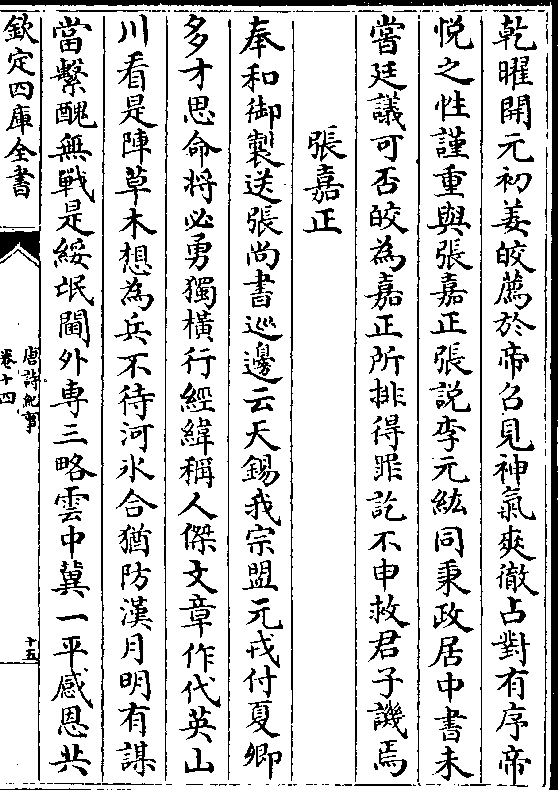 乾曜開元初姜皎薦於帝召見神氣爽徹占對有序帝
悦之性謹重與張嘉正張説李元紘同秉政居中書未
嘗廷議可否皎為嘉正所排得罪訖不申救君子譏焉
張嘉正
奉和御製送張尚書巡邊云天錫我宗盟元戎付夏卿
多才思命将必勇獨横行經緯稱人傑文章作代英山
川看是陣草木想為兵不待河氷合猶防漢月明有謀
當繫醜無戰是綏氓閫外専三略雲中冀一平感恩共
欽定四庫全書
唐詩紀事
卷十四
十五